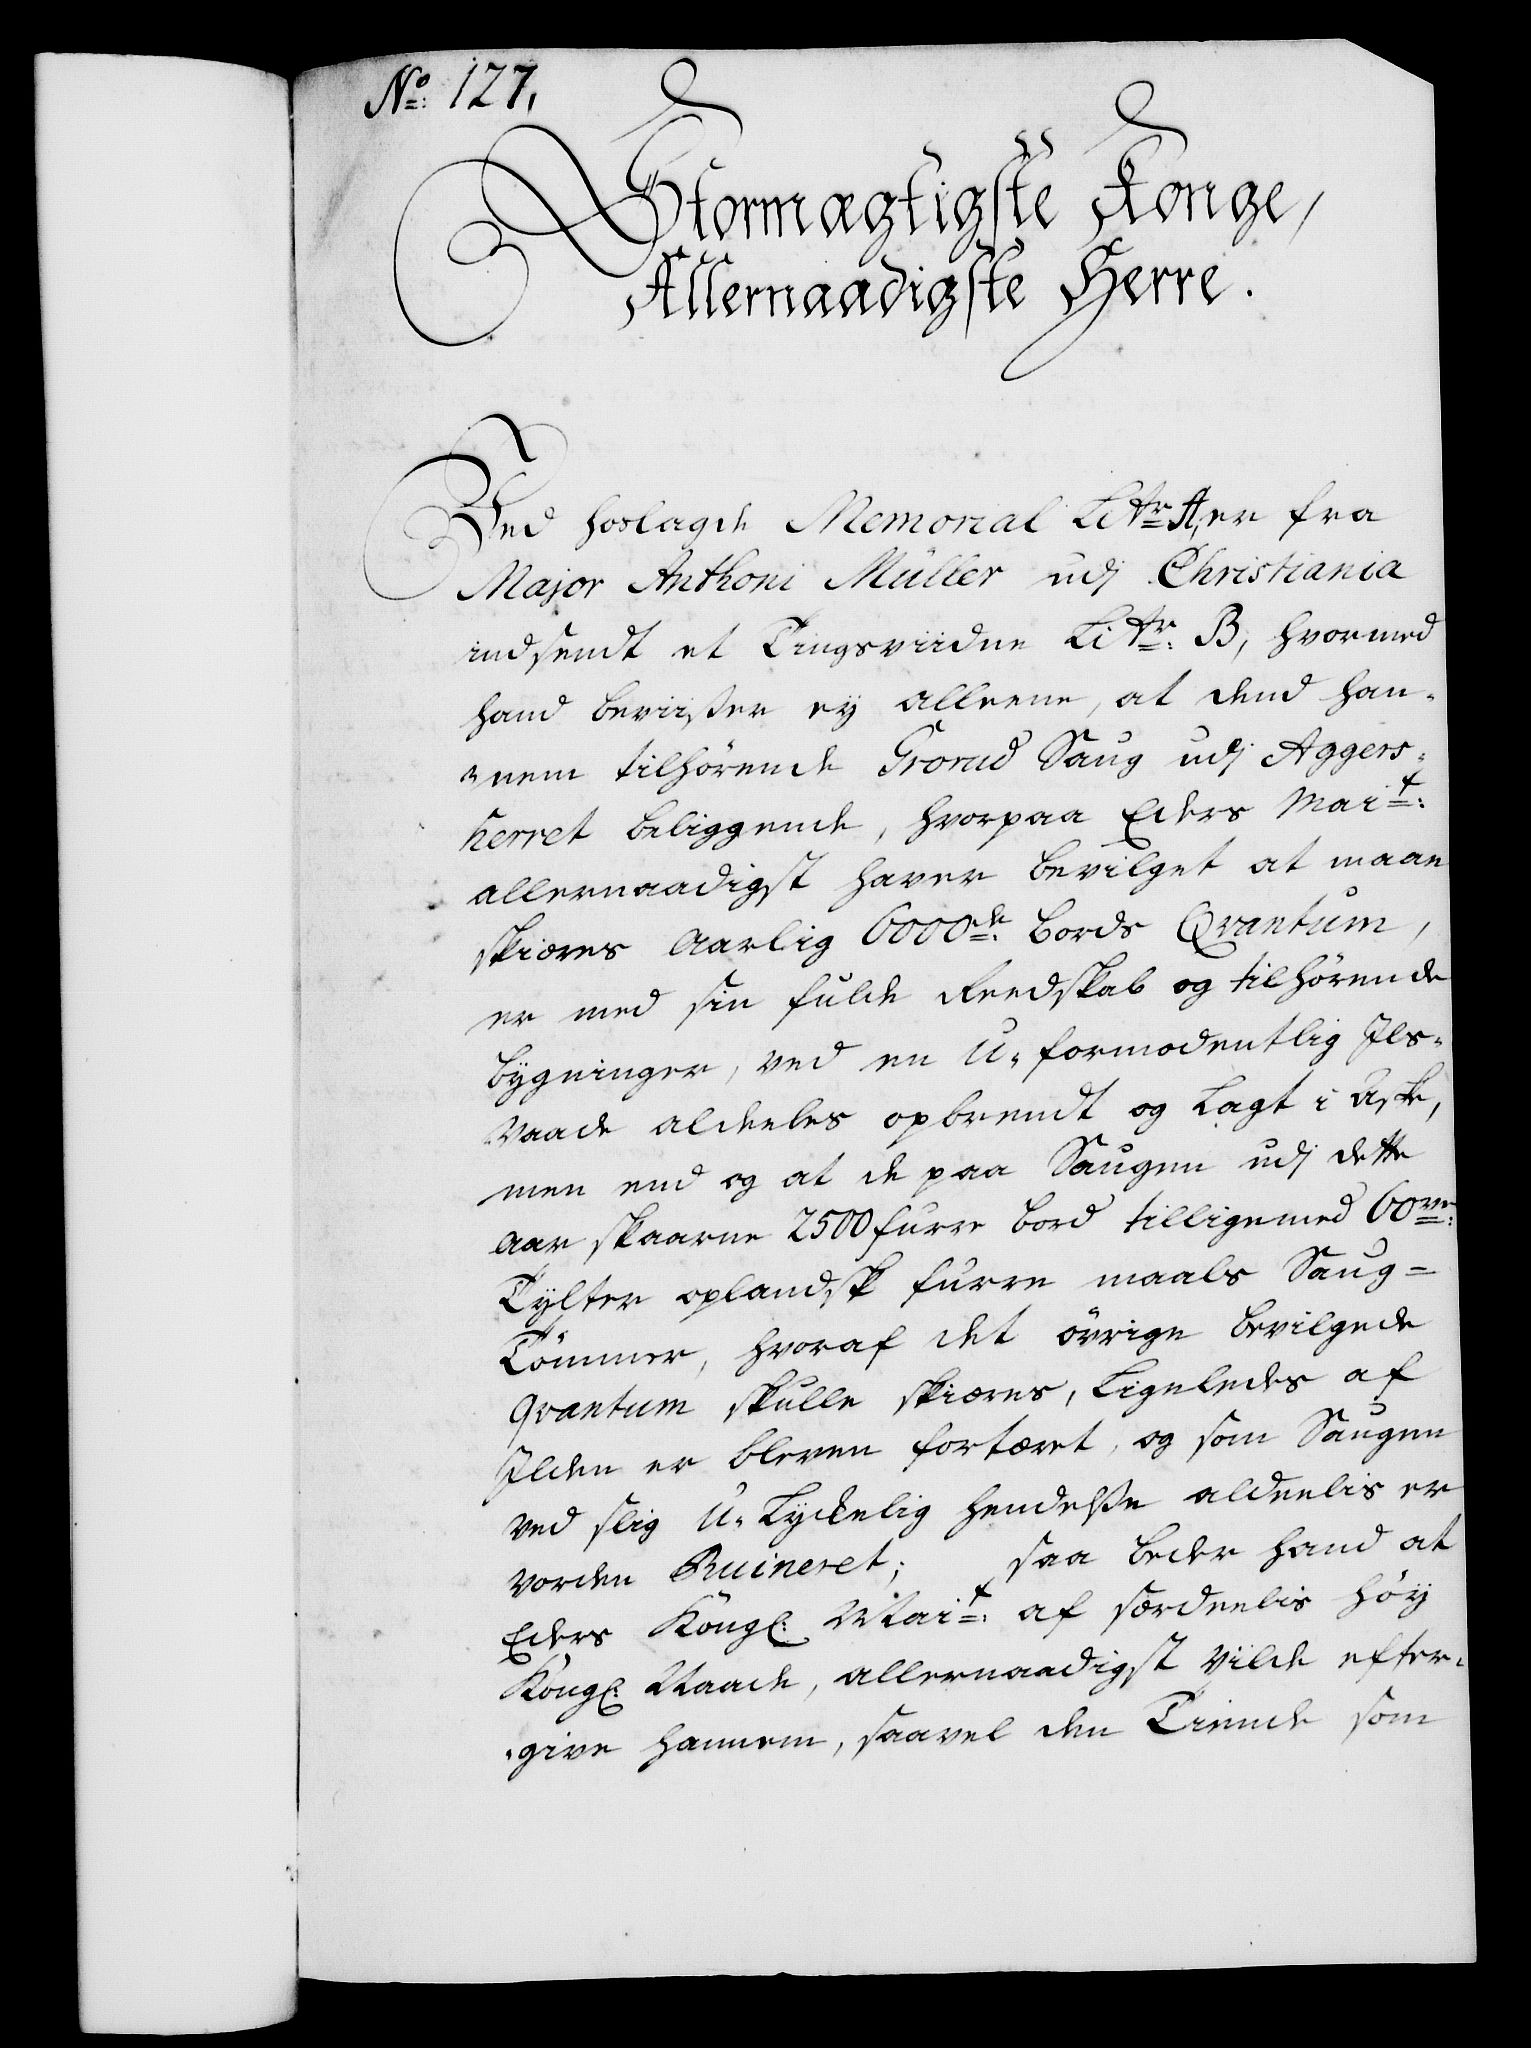 No: 127,
Stormægtigste Konge,
Allernaadigste Herre.
Ved hoslagde Memorial Litr: A, er fra
Major Anthoni Müller udj Christiania
indsendt et Tingsviidne Litr: B, hvormed
hand beviißer ey alleene, at dend han-
-nem tilhörende Grorud Saug udj Aggers-
herret beliggende, hvorpaa Eders Mait:
allernaadigst haver bevilget at maae
skiæres Aarlig 6000de: bords Qvantum,
er med sin fulde Reedskab og tilhörende
bygninger, ved en U-formodentlig Ils-
vaade aldeeles opbrendt og lagt i Aske,
men end og at de paa Saugen udj dette
Aar skaarne 2500 furre bord tilligemed 60ve:
Tylter oplandsk furre maals Saug-
Tömmer, hvoraf det övrige bevilgede
Qvantum skulle skiæres, ligeledes af
Ilden er bleven fortæret, og som Saugen
ved slig U-lyckelig hendelße aldeelis er
vorden Ruineret; saa beder hand at
Eders Kongl: Mait: af særdeelis höy
Kongl: Naade, allernaadigst vilde efter-
-give hannem, saavel den Tiende som